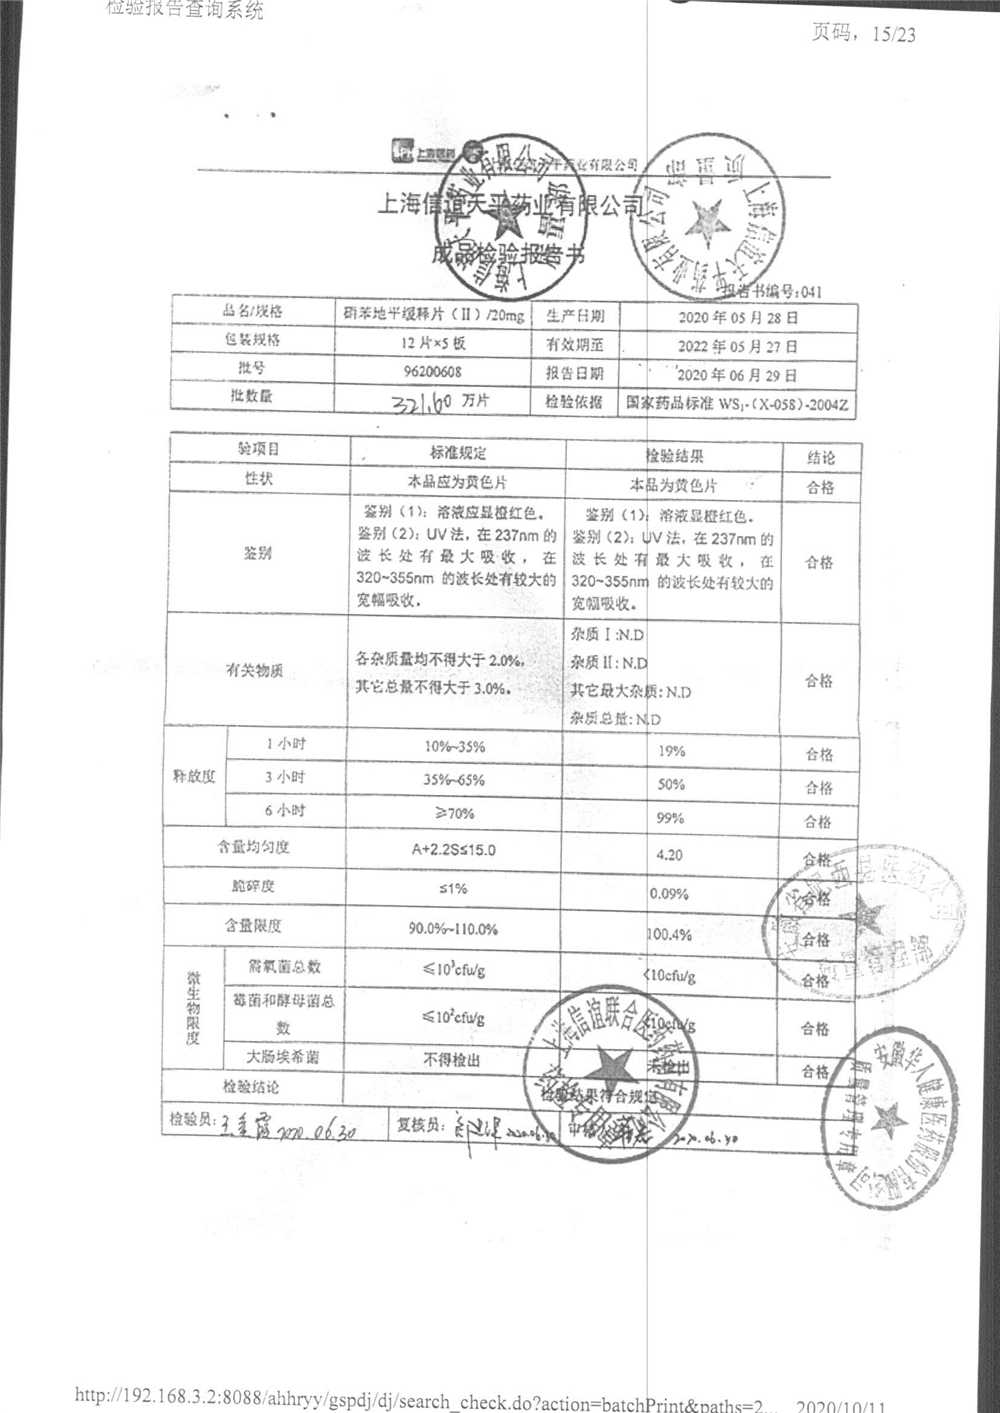 检验报告查询系统
页码，15/23
上海医药
上海信谊天平药业有限公司
成品检验报告书
报告书编号:041
品名/规格 硝苯地平缓释片（Ⅱ）/20mg 生产日期 2020 年 05 月 28 日
包装规格 12 片×5 板 有效期至 2022 年 05 月 27 日
批号 96200608 报告日期 2020 年 06 月 29 日
批数量 321.60 万片 检验依据 国家药品标准 WS₁-(X-058)-2004Z
验项目 标准规定 检验结果 结论
性状 本品应为黄色片 本品为黄色片 合格
鉴别 鉴别（1）：溶液应显橙红色。 鉴别（1）：溶液显橙红色。 合格
鉴别（2）：UV 法，在 237nm 的 鉴别（2）：UV 法，在 237nm 的
波长处有最大吸收，在 波长处有最大吸收，在
320~355nm 的波长处有较大的 320~355nm 的波长处有较大的
宽幅吸收。 宽幅吸收。
有关物质 各杂质量均不得大于 2.0%。 杂质Ⅰ:N.D 合格
其它总量不得大于 3.0%。 杂质Ⅱ: N.D
其它最大杂质: N.D
杂质总量: N.D
释放度 1 小时 10%~35% 19% 合格
3 小时 35%~65% 50% 合格
6 小时 ≥70% 99% 合格
含量均匀度 A+2.2S≤15.0 4.20 合格
脆碎度 ≤1% 0.09% 合格
含量限度 90.0%~110.0% 100.4% 合格
微生物限度 需氧菌总数 ≤10³cfu/g <10cfu/g 合格
霉菌和酵母菌总数 ≤10²cfu/g <10cfu/g 合格
大肠埃希菌 不得检出 未检出 合格
检验结论 检验结果符合规定
检验员: 2020.06.30 复核员:
上海信谊天平药业有限公司
质量部
上海信谊联合医药药材有限公司
安徽华人健康医药股份有限公司
质量管理专用章
http://192.168.3.2:8088/ahhryy/gspdj/dj/search_check.do?action=batchPrint&paths=2... 2020/10/11